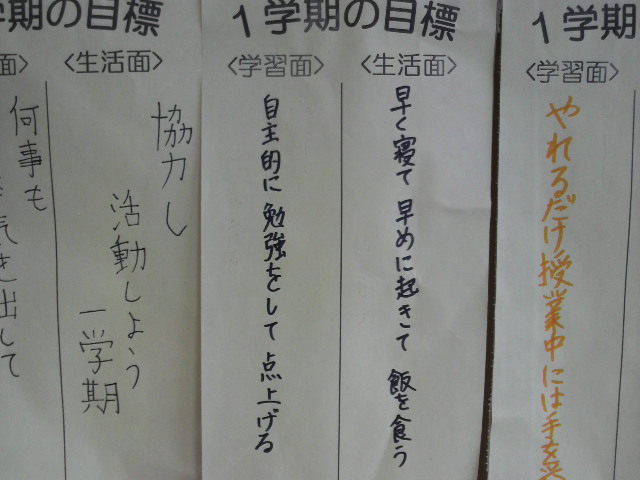 学期の目標
面〉
〈生活面〉
何事も
気き出して
協力し
活動しよう
一学期
1学期の目標
〈学習面〉
〈生活面〉
自主的に 勉強をして 点上げる
早く寝て 早めに起きて 飯を食う
1学期
〈学習面〉
やれるだけ授業中には手を